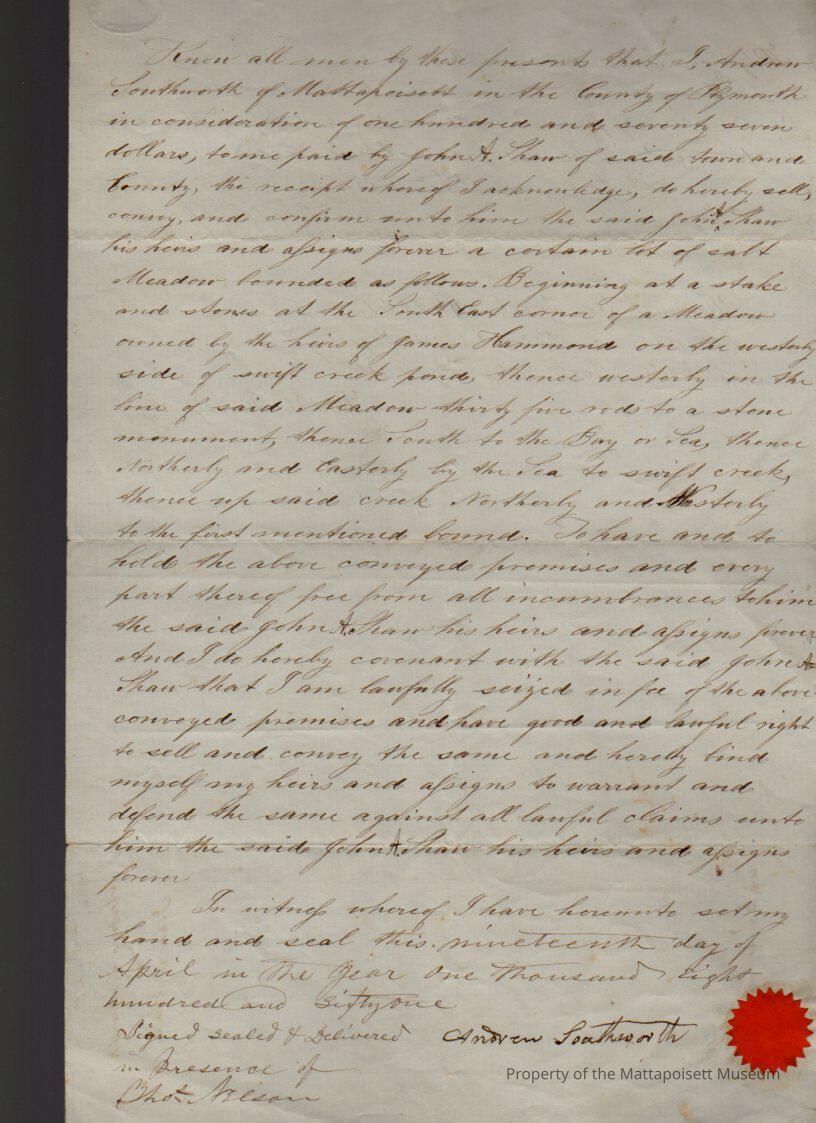 Know all men by these presents that I, Andrew
Southworth of Mattapoisett in the County of Plymouth
in consideration of one hundred and seventy seven
dollars, to me paid by John A. Shaw of said town and
County, the receipt whereof I acknowledge, do hereby sell,
convey, and confirm unto him the said John A Shaw
his heirs and assigns forever a certain lot of salt
Meadow bounded as follows. Beginning at a stake
and stones at the South East corner of a Meadow
owned by the heirs of James Hammond on the westerly
side of swift creek pond, thence westerly in the
line of said Meadow thirty five rods to a stone
monument, thence South to the Bay or Sea, thence
Northerly and Easterly by the Sea to swift creek,
thence up said creek Northerly and Westerly
to the first mentioned bound. To have and to
hold the above conveyed premises and every
part thereof free from all incumbrances to him
the said John A. Shaw his heirs and assigns forever
And I do hereby covenant with the said John A
Shaw that I am lawfully seized in fee of the above
conveyed premises and have good and lawful right
to sell and convey the same and hereby bind
myself my heirs and assigns to warrant and
defend the same against all lawful claims unto
him the said John A. Shaw his heirs and assigns
forever
In witness whereof I have hereunto set my
hand and seal this nineteenth day of
April in the year one thousand Eight
hundred and sixty one
Signed sealed & Delivered Andrew Southworth
in Presence of
Thos. Nelson
Property of the Mattapoisett Museum